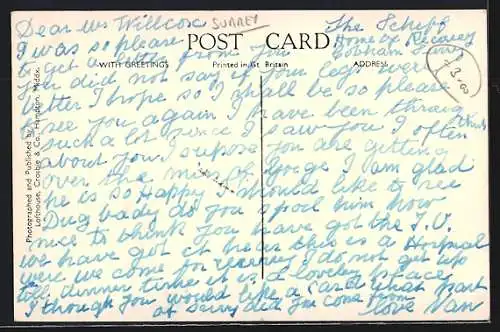 SURREY
Dear Mrs Willcox The Schiff
Home of Recovery
Cobham Surrey
I was so please
to get from you
POST CARD
WITH GREETINGS Printed in Gt. Britain ADDRESS
you did not say if your legs were
better I hope so I shall be so please
see you again I have been through
such a lot since I saw you I often think
about you I supose you are getting
over the miss of Gorge I am glad
he is so Happy I would like to see
bady as you spoil him how
nice to think you have got the T.V.
we have got it hear this is a Hospital
were we come for recovery I do not get up
till dinner time it is a lovely place
I though you would like a card what part
of Surry did you come from
love Nan
3-00
Photographed and Published by
Lofthouse, Crosbie & Co., Hampton, Middx.